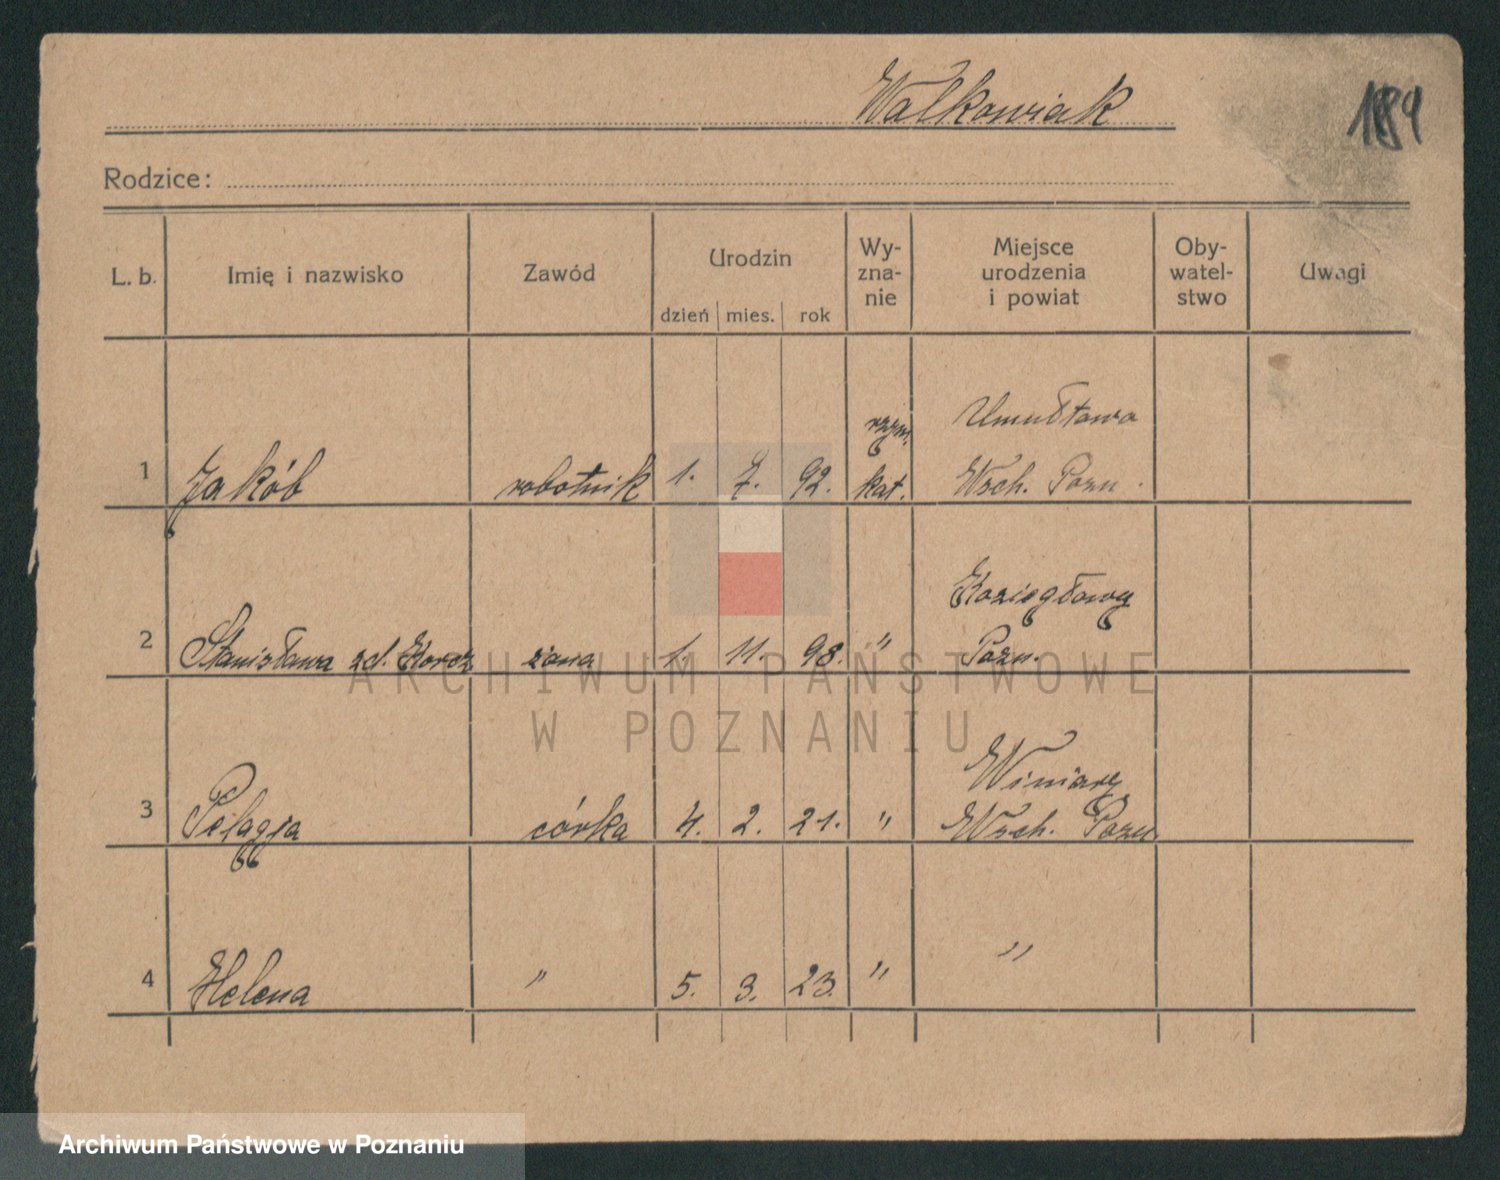 Walkowiak
Rodzice:
L. b. Imię i nazwisko Zawód Urodzin dzień mies. rok Wy-zna-nie Miejsce urodzenia i powiat Oby-watel-stwo Uwagi
1 Jakób robotnik 1. 7. 92. rzym. kat. Umułtowo Wsch. Pozn.
2 Stanisława zd. Korcz żona 1. 11. 98. " Koziegłowy Pozn.
3 Pelagja córka 4. 2. 21. " Winiary Wsch. Pozn
4 Helena " 5. 3. 23. " "
ARCHIWUM PAŃSTWOWE
W POZNANIU
Archiwum Państwowe w Poznaniu